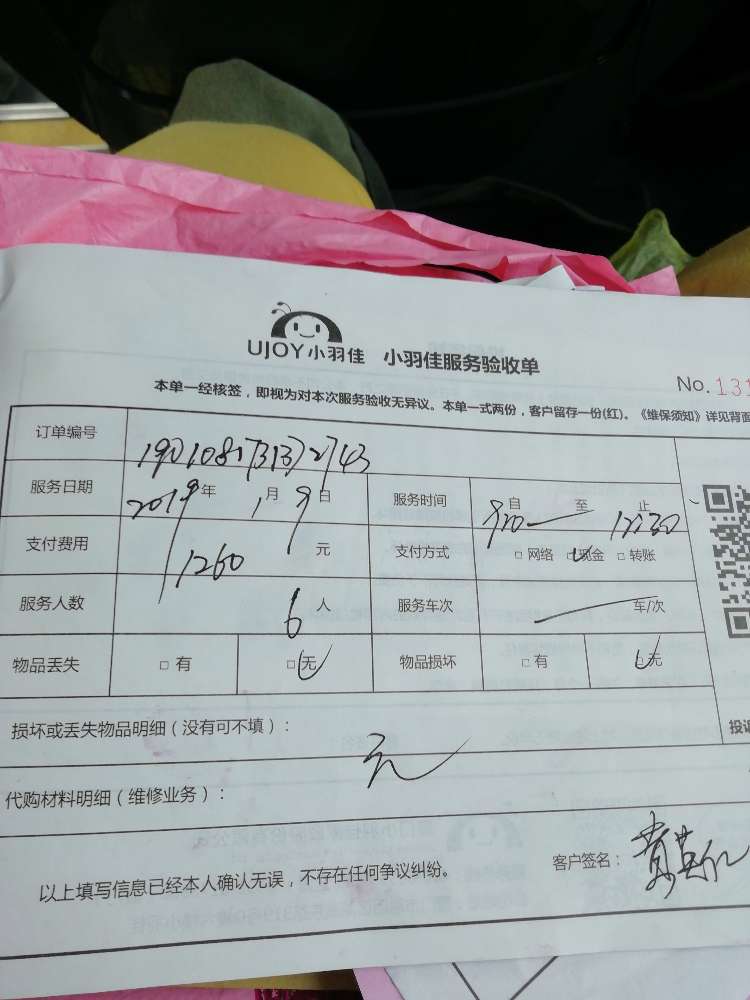 UJOY小羽佳 小羽佳服务验收单
No. 131
本单一经核签，即视为对本次服务验收无异议。本单一式两份，客户留存一份(红)。《维保须知》详见背面
订单编号 190108173132743
服务日期 2019年 1月 9日 服务时间 自 920 至 12:30 止
支付费用 1260 元 支付方式 □ 网络 □ 现金 □ 转账
服务人数 6 人 服务车次 车/次
物品丢失 □ 有 □ 无 物品损坏 □ 有 □ 无
投诉
损坏或丢失物品明细（没有可不填）：
无
代购材料明细（维修业务）：
以上填写信息已经本人确认无误，不存在任何争议纠纷。
客户签名：